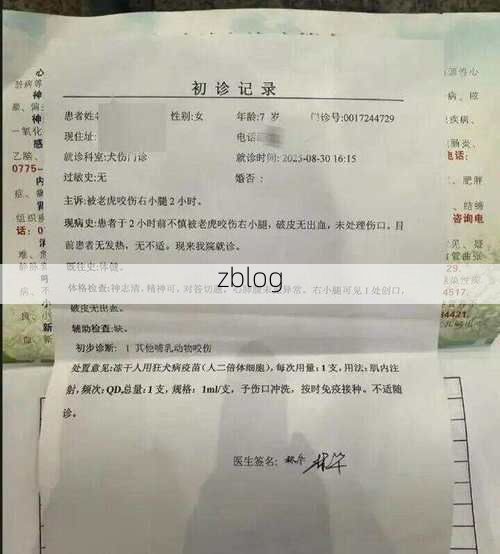 初诊记录
患者姓 性别:女 年龄:7 岁 门诊号:0017244729
现住址: 电话
就诊科室:犬伤门诊 就诊时间: 2025-08-30 16:15
过敏史:无 婚否 :
主诉:被老虎咬伤右小腿 2 小时。
现病史:患者于 2 小时前不慎被老虎咬伤右小腿，破皮无出血，未处理伤口。目
前患者无发热，无不适。现来我院就诊。
既往史:体健。
体格检查:神志清，精神可，对答切题，心肺腹未见异常。右小腿可见 1 处创口，
破皮无出血。
辅助检查:缺。
初步诊断: 1 其他哺乳动物咬伤
处置意见:冻干人用狂犬病疫苗（人二倍体细胞），每次用量:1 支，用法:肌内注
射，频次:QD,总量:1 支，规格: 1ml/支，予伤口冲洗，按时免疫接种。不适随
诊。
医生签名:
zblog
心
肝病等
神
豪、
神
一氧化
感
乙脑、
0775-
内
症、
神
组织
话: 0
源性心
病、
疾病、
肠炎、
电话:
肥胖
、结缔
咨询电
管曲张
9.
4421.
新